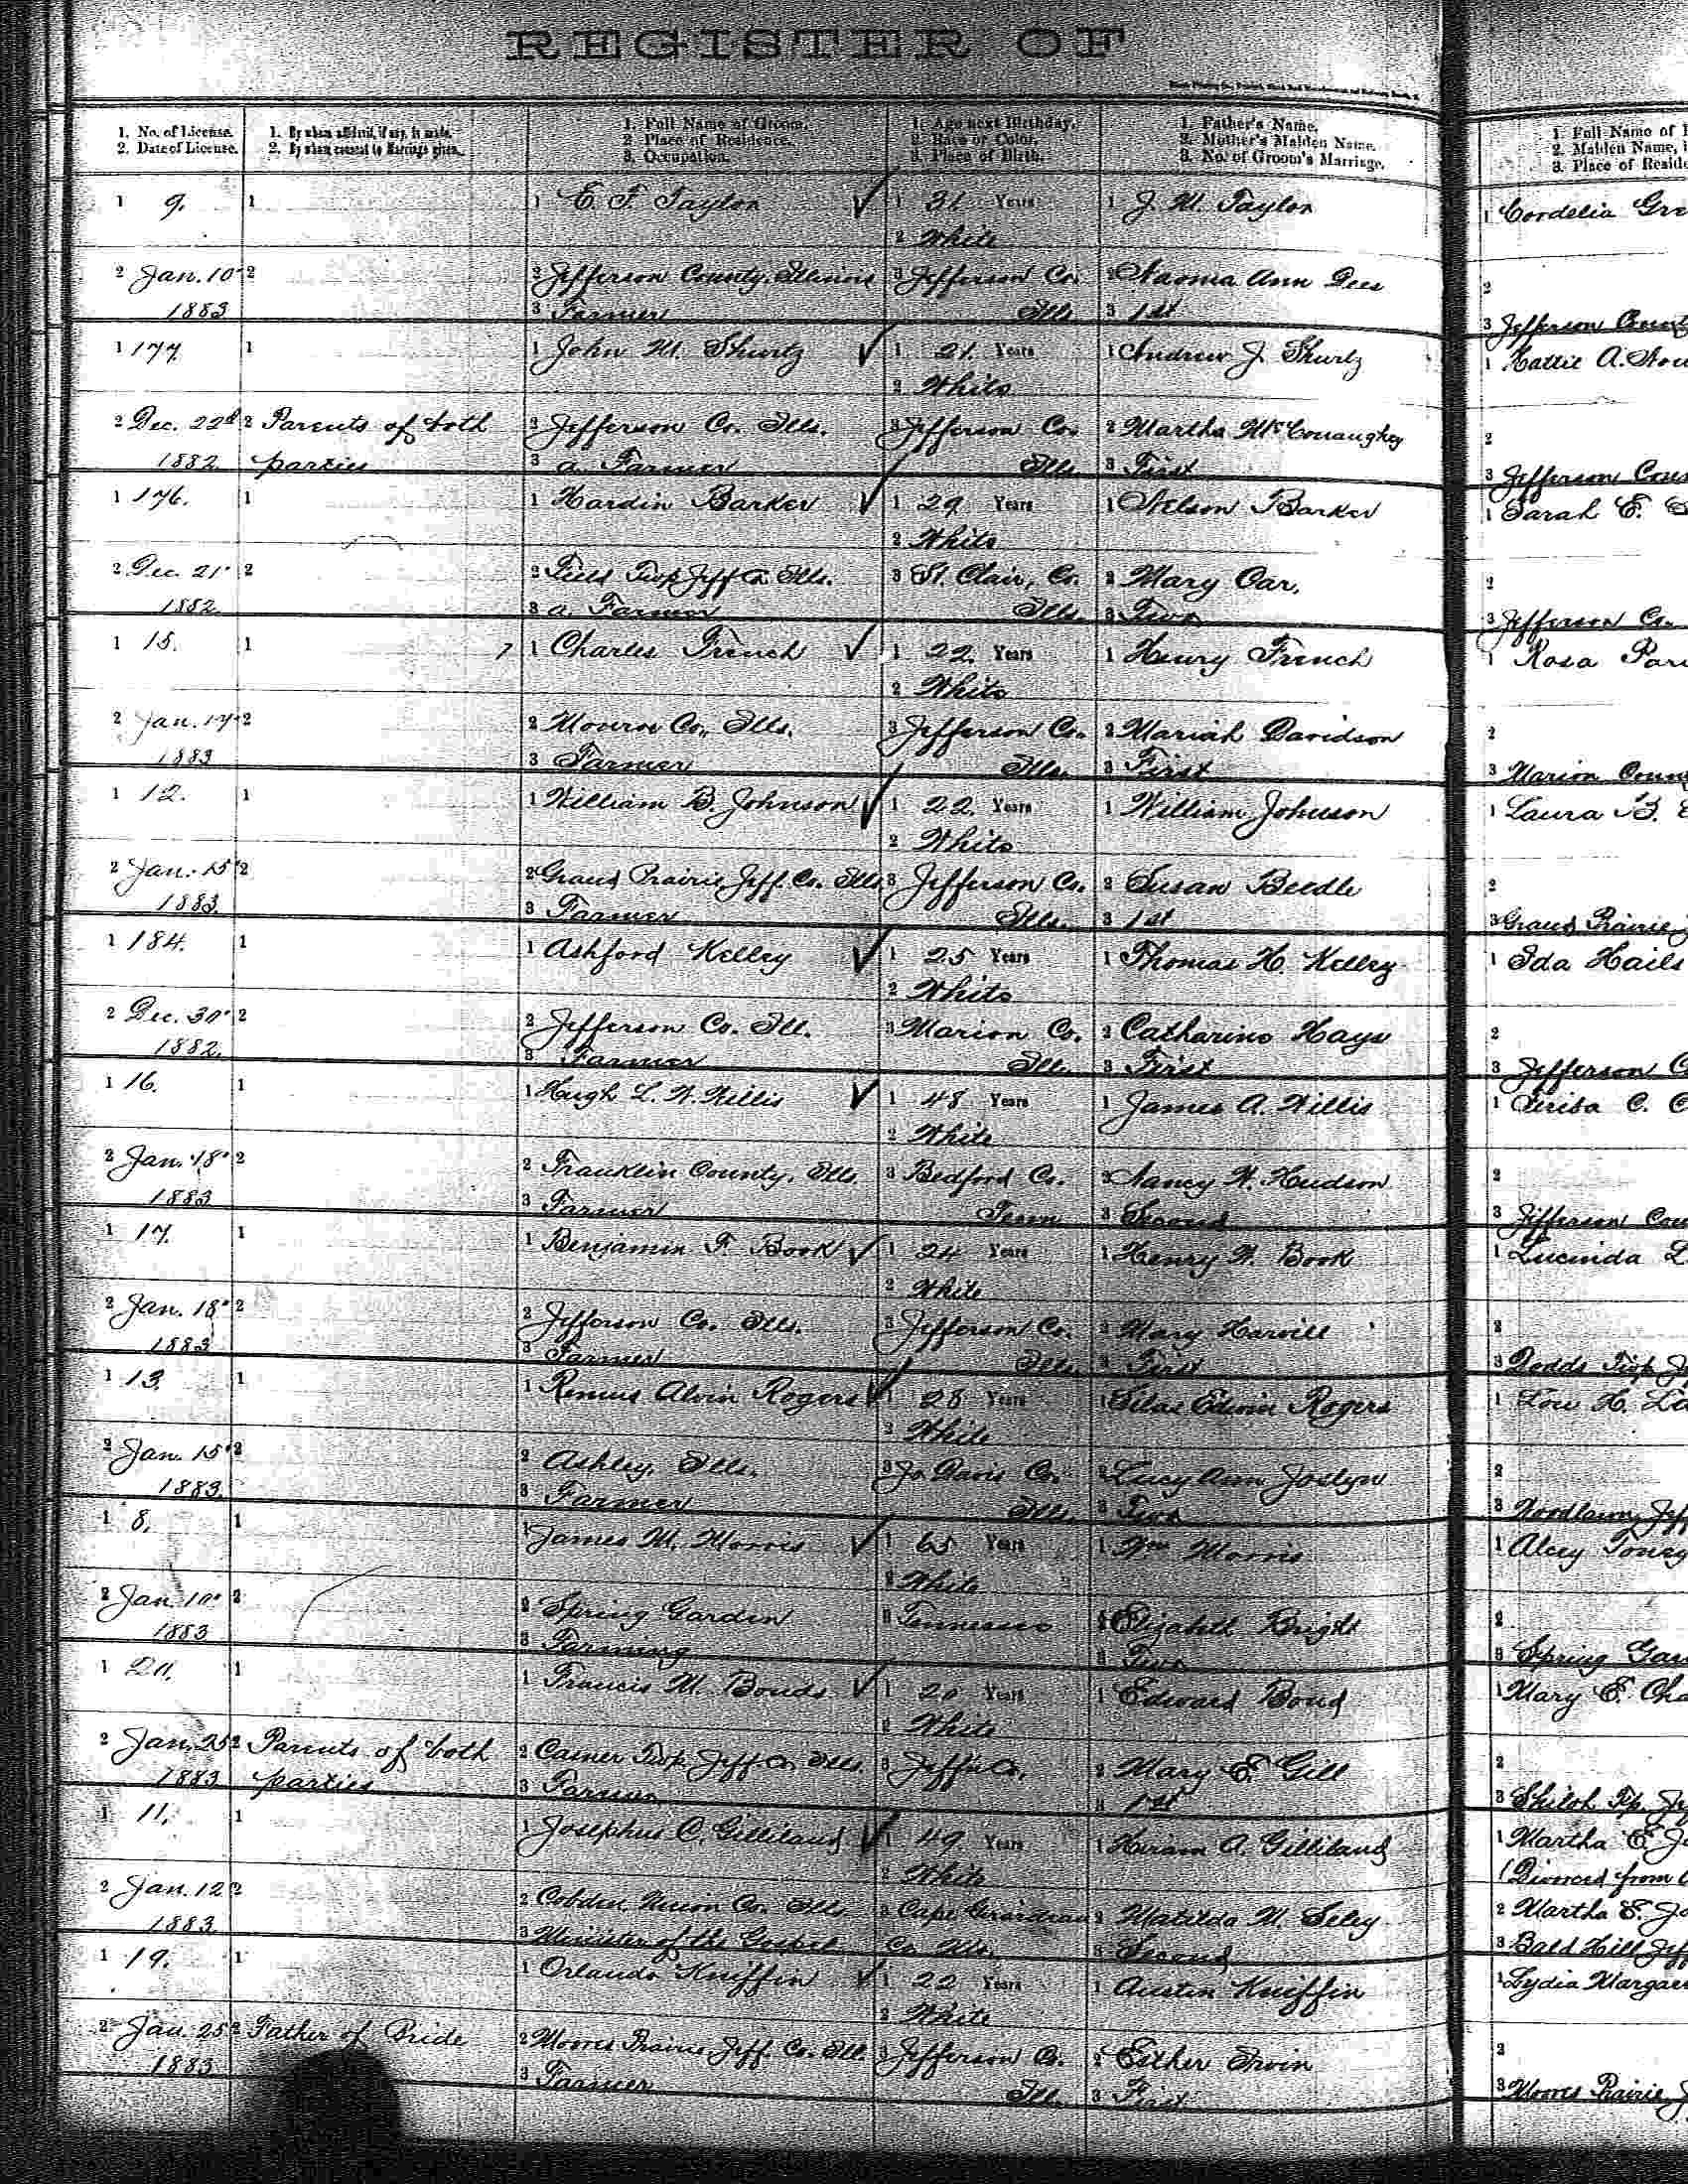 REGISTER OF
1. No. of License. 1. By whom affidavit, if any, is made. 1. Full Name of Groom. 1. Age next Birthday. 1. Father's Name. 1. Full Name of
2. Date of License. 2. By whom consent to Marriage given. 2. Place of Residence. 2. Race or Color. 2. Mother's Maiden Name. 2. Maiden Name,
3. Occupation. 3. Place of Birth. 3. No. of Groom's Marriage. 3. Place of Reside
1 9. 1 1 E. F. Taylor ✓ 1 31 Years 1 J. M. Taylor 1 Cordelia Gre
2 White
2 Jan. 10 2 2 Jefferson County, Illinois 3 Jefferson Co. 2 Naoma Ann Dees 2
1883 3 Farmer Ills. 3 1st 3 Jefferson Count
1 177. 1 1 John M. Shurtz ✓ 1 21 Years 1 Andrew J. Shurtz 1 Hattie A.
2 White
2 Dec. 22d 2 Parents of both 2 Jefferson Co. Ills. 3 Jefferson Co. 2 Martha McConaughey 2
1882 parties 3 a. Farmer Ills. 3 First 3 Jefferson Coun
1 176. 1 1 Hardin Barker ✓ 1 29 Years 1 Nelson Barker 1 Sarah E.
2 White
2 Dec. 21 2 2 Field Twp Jeff Co. Ills. 3 St. Clair, Co. 2 Mary Car, 2
1882 3 a. Farmer Ills. 3 Two 3 Jefferson Co.
1 15. 1 1 Charles French ✓ 1 22 Years 1 Henry French 1 Rosa Par
2 White
2 Jan. 17 2 2 Monroe Co., Ills. 3 Jefferson Co. 2 Mariah Davidson 2
1883 3 Farmer Ills. 3 First 3 Marion Coun
1 12. 1 1 William B. Johnson ✓ 1 22 Years 1 William Johnson 1 Laura B.
2 White
2 Jan. 15 2 2 Grand Prairie, Jeff. Co. Ills 3 Jefferson Co. 2 Susan Beedle 2
1883. 3 Farmer Ills. 3 1st 3 Grand Prairie
1 184. 1 1 Ashford Kelley ✓ 1 25 Years 1 Thomas H. Kelley 1 Ida Hails
2 White
2 Dec. 30 2 2 Jefferson Co. Ill. 3 Marion Co. 2 Catharine Hays 2
1882. 3 Farmer Ill. 3 First 3 Jefferson C
1 16. 1 1 Hugh L. W. Willis ✓ 1 48 Years 1 James A. Willis 1 C.
2 White
2 Jan. 18 2 2 Franklin County, Ills. 3 Bedford Co. 2 Nancy W. Hudson 2
1883 3 Farmer Tenn 3 Second 3 Jefferson Cou
1 17. 1 1 Benjamin F. Book ✓ 1 24 Years 1 Henry W. Book 1 Lucinda L
2 White
2 Jan. 18 2 2 Jefferson Co. Ills. 3 Jefferson Co. 2 Mary Harvill 2
1883 3 Farmer Ills. 3 First 3 Dodds Twp J
1 13. 1 1 Remus Alvin Rogers ✓ 1 28 Years 1 Silas Edwin Rogers 1 Lou H. La
2 White
2 Jan. 15 2 2 Ashley, Ills. 3 Jo Davis Co. 2 Lucy Ann Joslyn 2
1883. 3 Farmer Ills. 3 Two 3 Woodlawn, Jeff
1 8. 1 1 James M. Morris ✓ 1 65 Years 1 Wm Morris 1 Alcy
2 White
2 Jan. 10 2 2 Spring Garden 3 Tennessee 2 Elizabeth Bright 2
1883 3 Farming 3 Two 3 Spring Gar
1 20. 1 1 Francis M. Bonds ✓ 1 20 Years 1 Edward Bond 1 Mary E. Cha
2 White
2 Jan. 25 2 Parents of both 2 Casner Twp. Jeff. Co Ills. 3 Jeff. Co. 2 Mary E. Gill 2
1883 parties 3 Farmer 3 1st 3 Shiloh Tp. Je
1 11. 1 1 Josephus C. Gilliland ✓ 1 49 Years 1 Hiram A. Gilliland 1 Martha E. Jo
2 White (Divorced from
2 Jan. 12 2 2 Cobden Union Co. Ills. 3 Cape Girardeau 2 Matilda M. Seley 2 Martha E. Jo
1883. 3 Minister of the Gospel Co Mo. 3 Second 3 Bald Hill, Jeff
1 19. 1 1 Orlando Kniffin ✓ 1 22 Years 1 Austin Kniffin 1 Lydia Margar
2 White
2 Jan. 25 2 Father of Bride 2 Moores Prairie, Jeff. Co. Ill. 3 Jefferson Co. 2 Esther Irvin 2
1883 3 Farmer Ill. 3 First 3 Moores Prairie, J